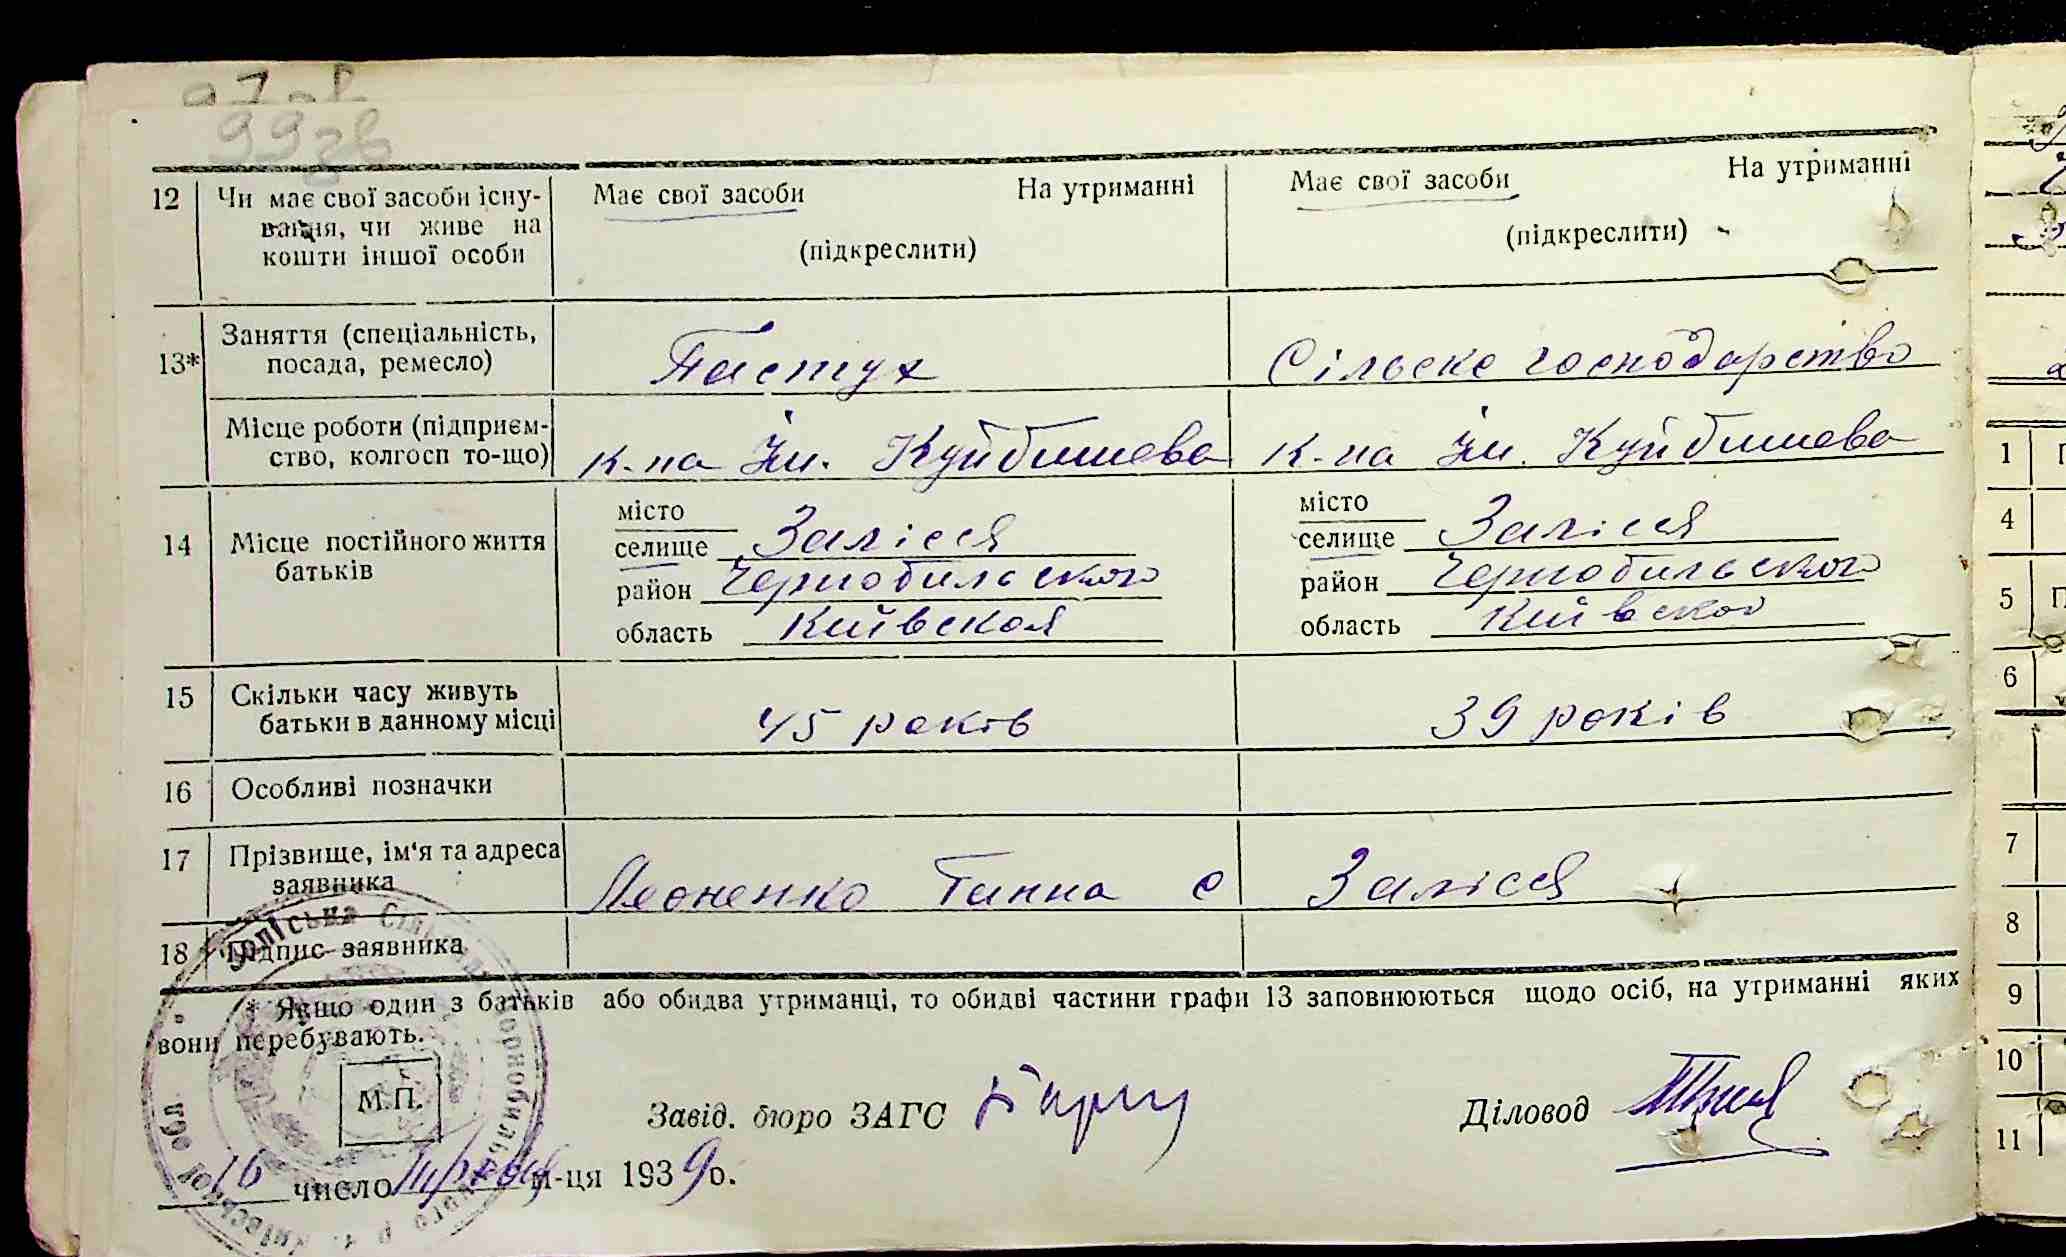 99зв
12 Чи має свої засоби існу- Має свої засоби На утриманні Має свої засоби На утриманні
вання, чи живе на
кошти іншої особи (підкреслити) (підкреслити)
13* Заняття (спеціальність,
посада, ремесло) Пастух Сільске господарство
Місце роботи (підприєм-
ство, колгосп то-що) к-па Ім. Куйбишева к-па Ім. Куйбишева
14 Місце постійного життя
батьків
місто місто
селище Залісся селище Залісся
район Чернобильського район Чернобильского
область Київская область Київской
15 Скільки часу живуть
батьки в данному місці 45 років 39 років
16 Особливі позначки
17 Прізвище, ім'я та адреса
заявника Леоненко Ганна с Залісся
18 Підпис заявника
* Якщо один з батьків або обидва утриманці, то обидві частини графи 13 заповнюються щодо осіб, на утриманні яких
вони перебувають.
М.П.
Завід. бюро ЗАГС Діловод
16 число м-ця 1939 р.
1
4
5
6
7
8
9
10
11